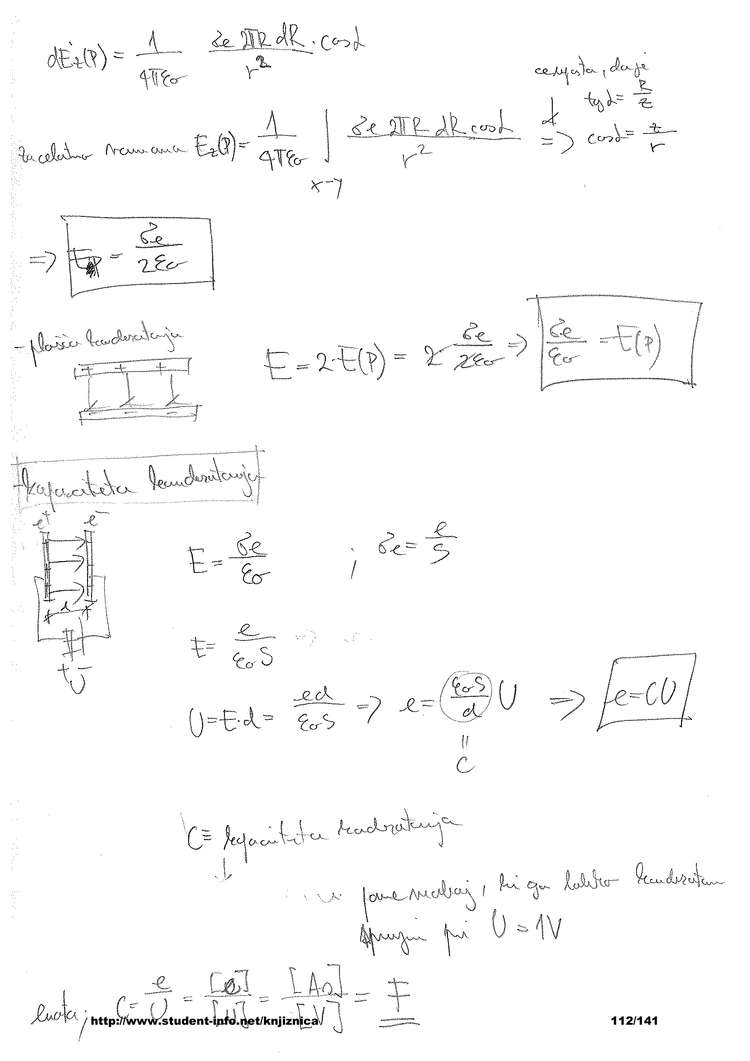 dE_z(P) = 1/(4πε₀) σe 2πR dR · cosα / r²
daje
tgα = R/z
E_z(P) = 1/(4πε₀) ∫_{x-y} σe 2πR dR cosα / r² => cosα = z/r
=> E_P = σe/(2ε₀)
E = 2·E(P) = 2 σe/(2ε₀) => σe/ε₀ = E(P)
+ + +
- - -
- kapaciteta kondenzatorja
e⁺ e⁻
E = σe/ε₀ ; σe = e/S
d
E = e/(ε₀S)
+ -
U
U = E·d = ed/(ε₀S) => e = (ε₀S/d) U => e = CU
=
C
C ≡ kapaciteta kondenzatorja
pove naboj, ki ga lahko kondenzator
sprejme pri U = 1V
enota; C = e/U = [e]/[U] = [As]/[V] = F
http://www.student-info.net/knjiznica
112/141